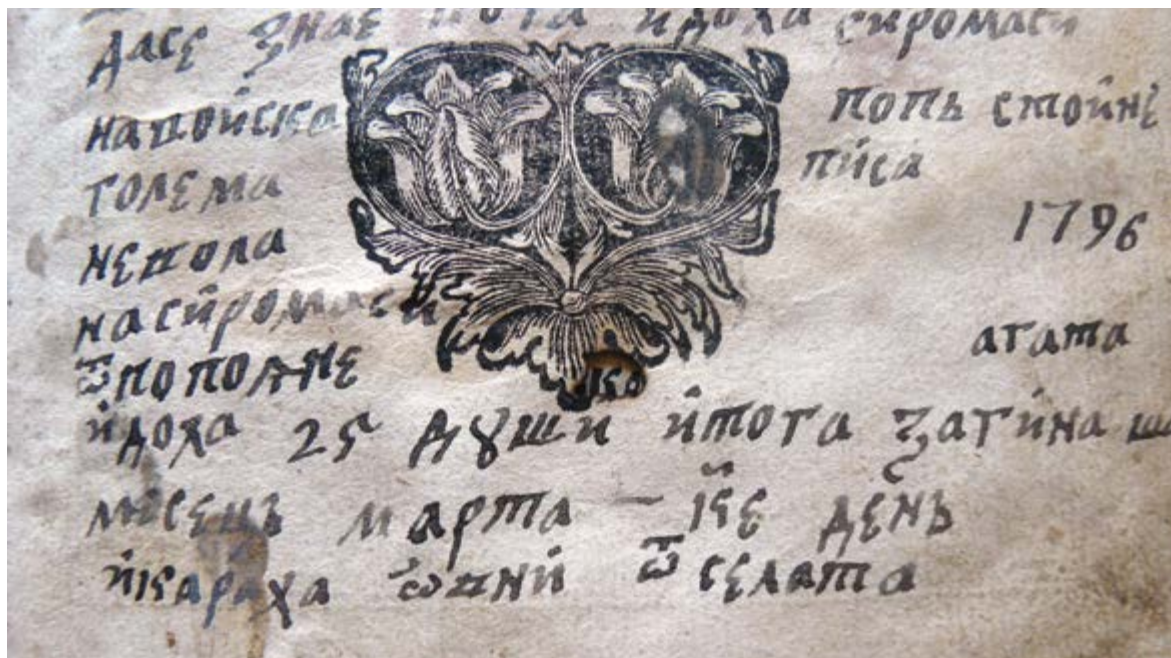 дасе знае кога идоха сиромаси
навойска попъ стойне
голема писа
невола 1796
насиромаси
ѿпополне агата
идоха 25 дꙋши итога загина
месецъ марта – к҃е денъ
икараха ѡвни ѿселата